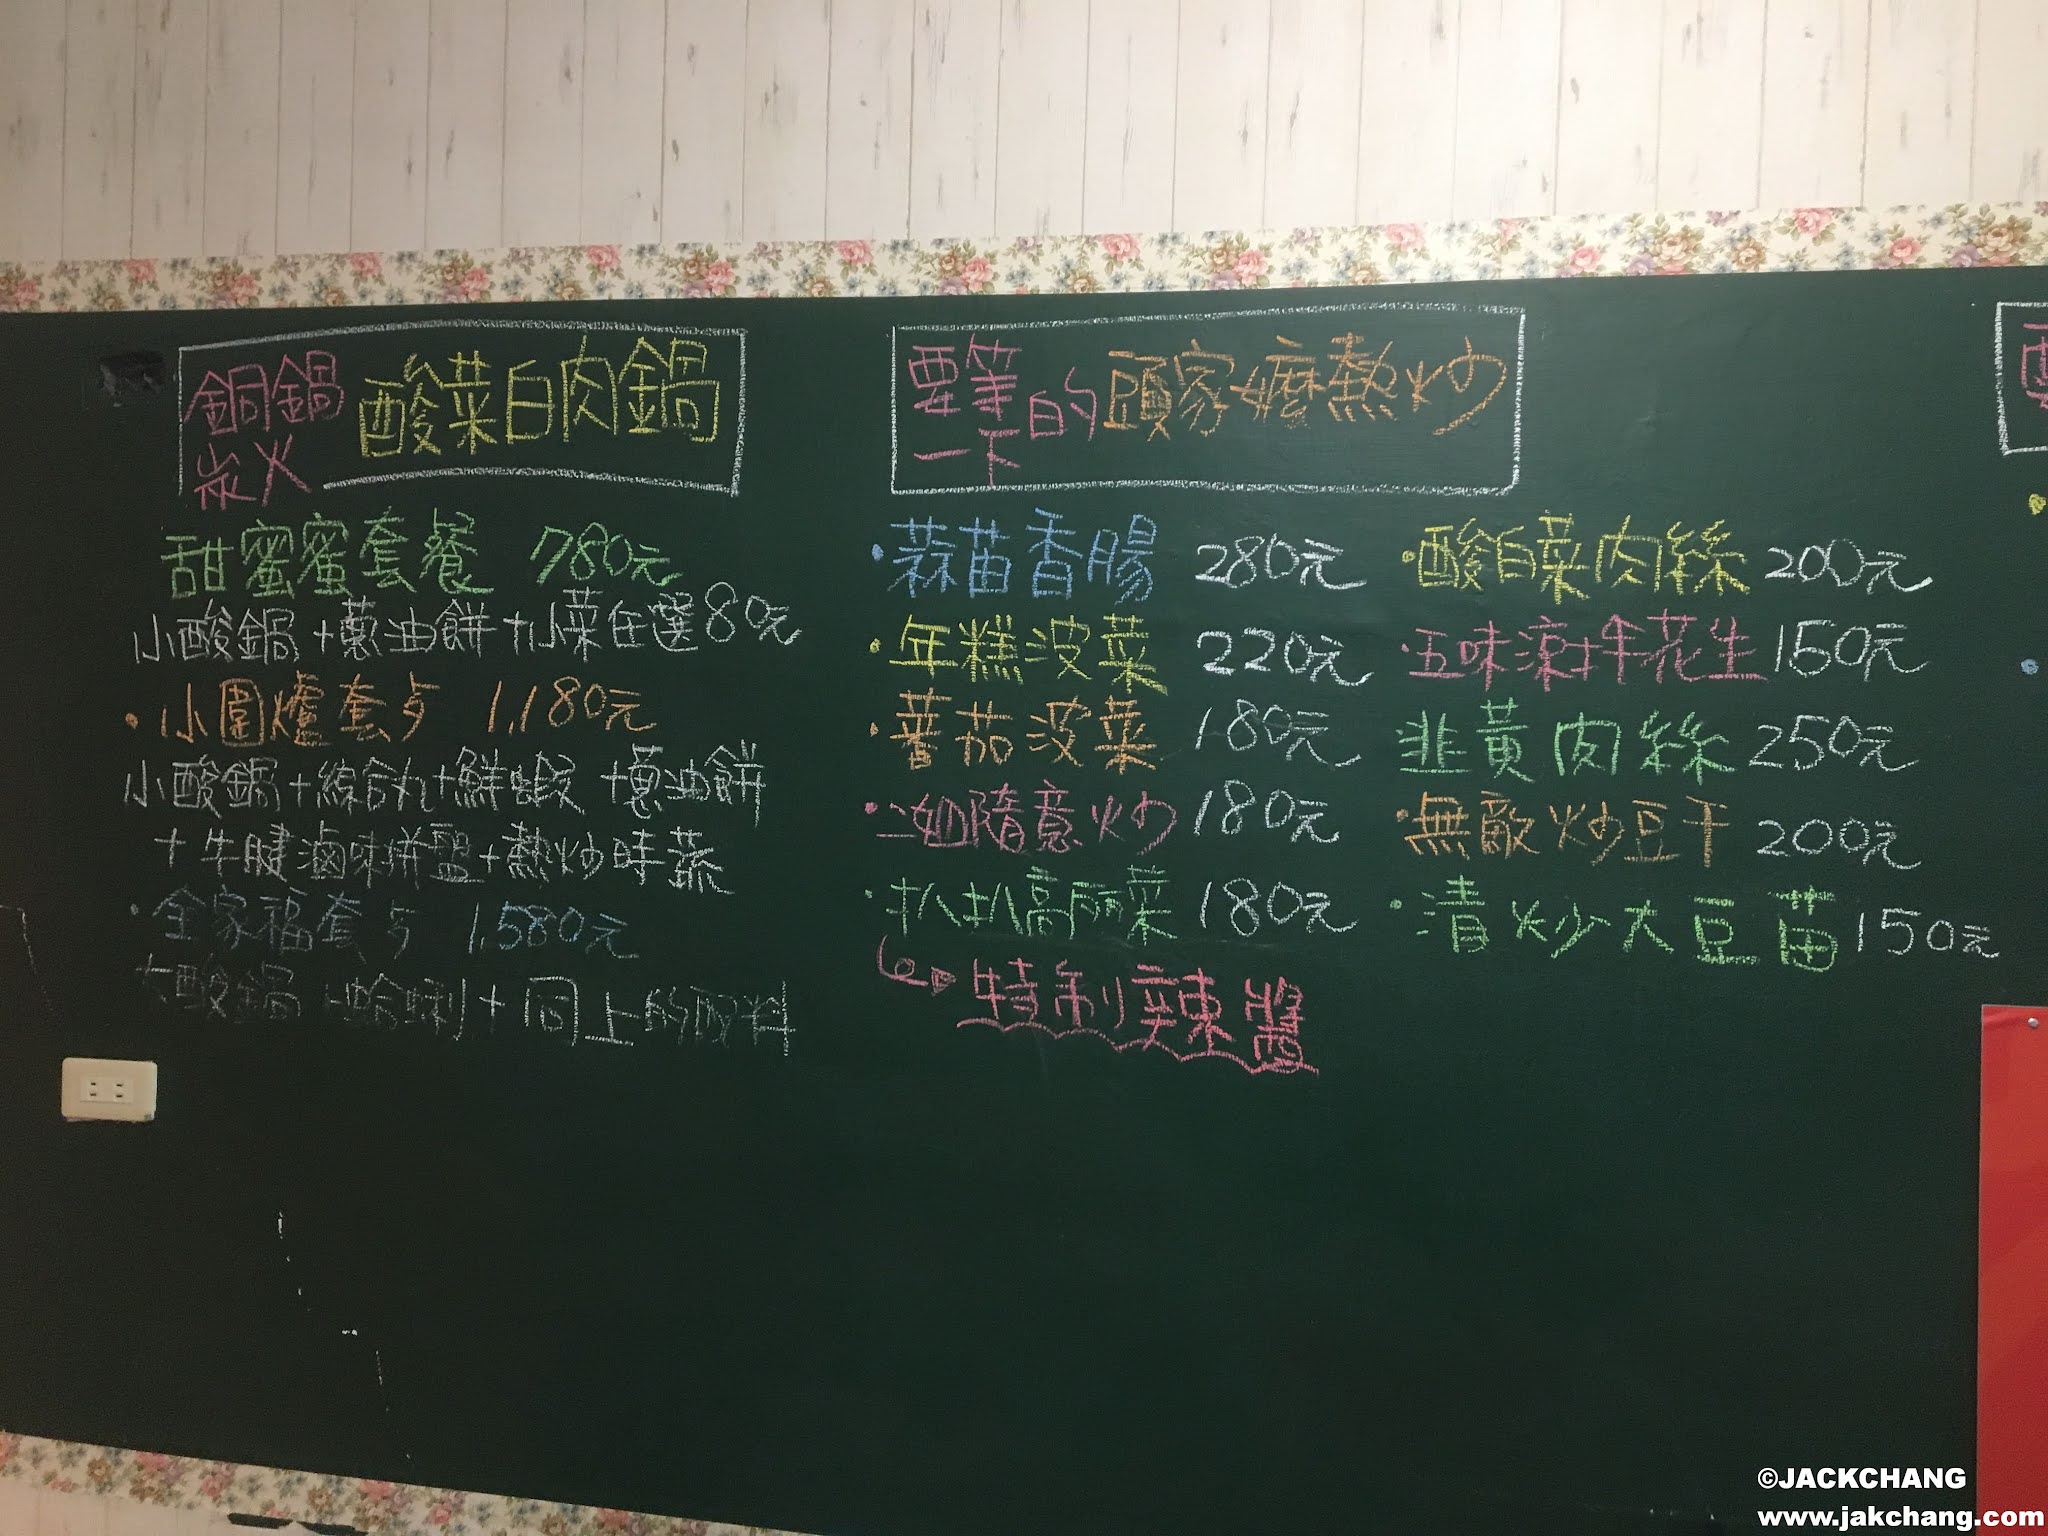 銅鍋
炭火
酸菜白肉鍋
甜蜜蜜套餐 780元
小酸鍋+蔥油餅+小菜任選80元
·小圍爐套歺 1,180元
小酸鍋+綜合丸+鮮蝦+蔥油餅
+牛腱滷味拼盤+熱炒時蔬
·全家福套歺 1,580元
大酸鍋+蛤蜊+同上的配料
要等
一下
的
頭家嬤熱炒
·蒜苗香腸 280元
·年糕波菜 220元
·蕃茄波菜 180元
·二姐隨意炒 180元
·扒扒高丽菜 180元
特制辣醬
·酸白菜肉絲 200元
·五味涼拌花生 150元
韭黃肉絲 250元
·無敵炒豆干 200元
·清炒大豆苗 150元
©JACKCHANG
www.jakchang.com